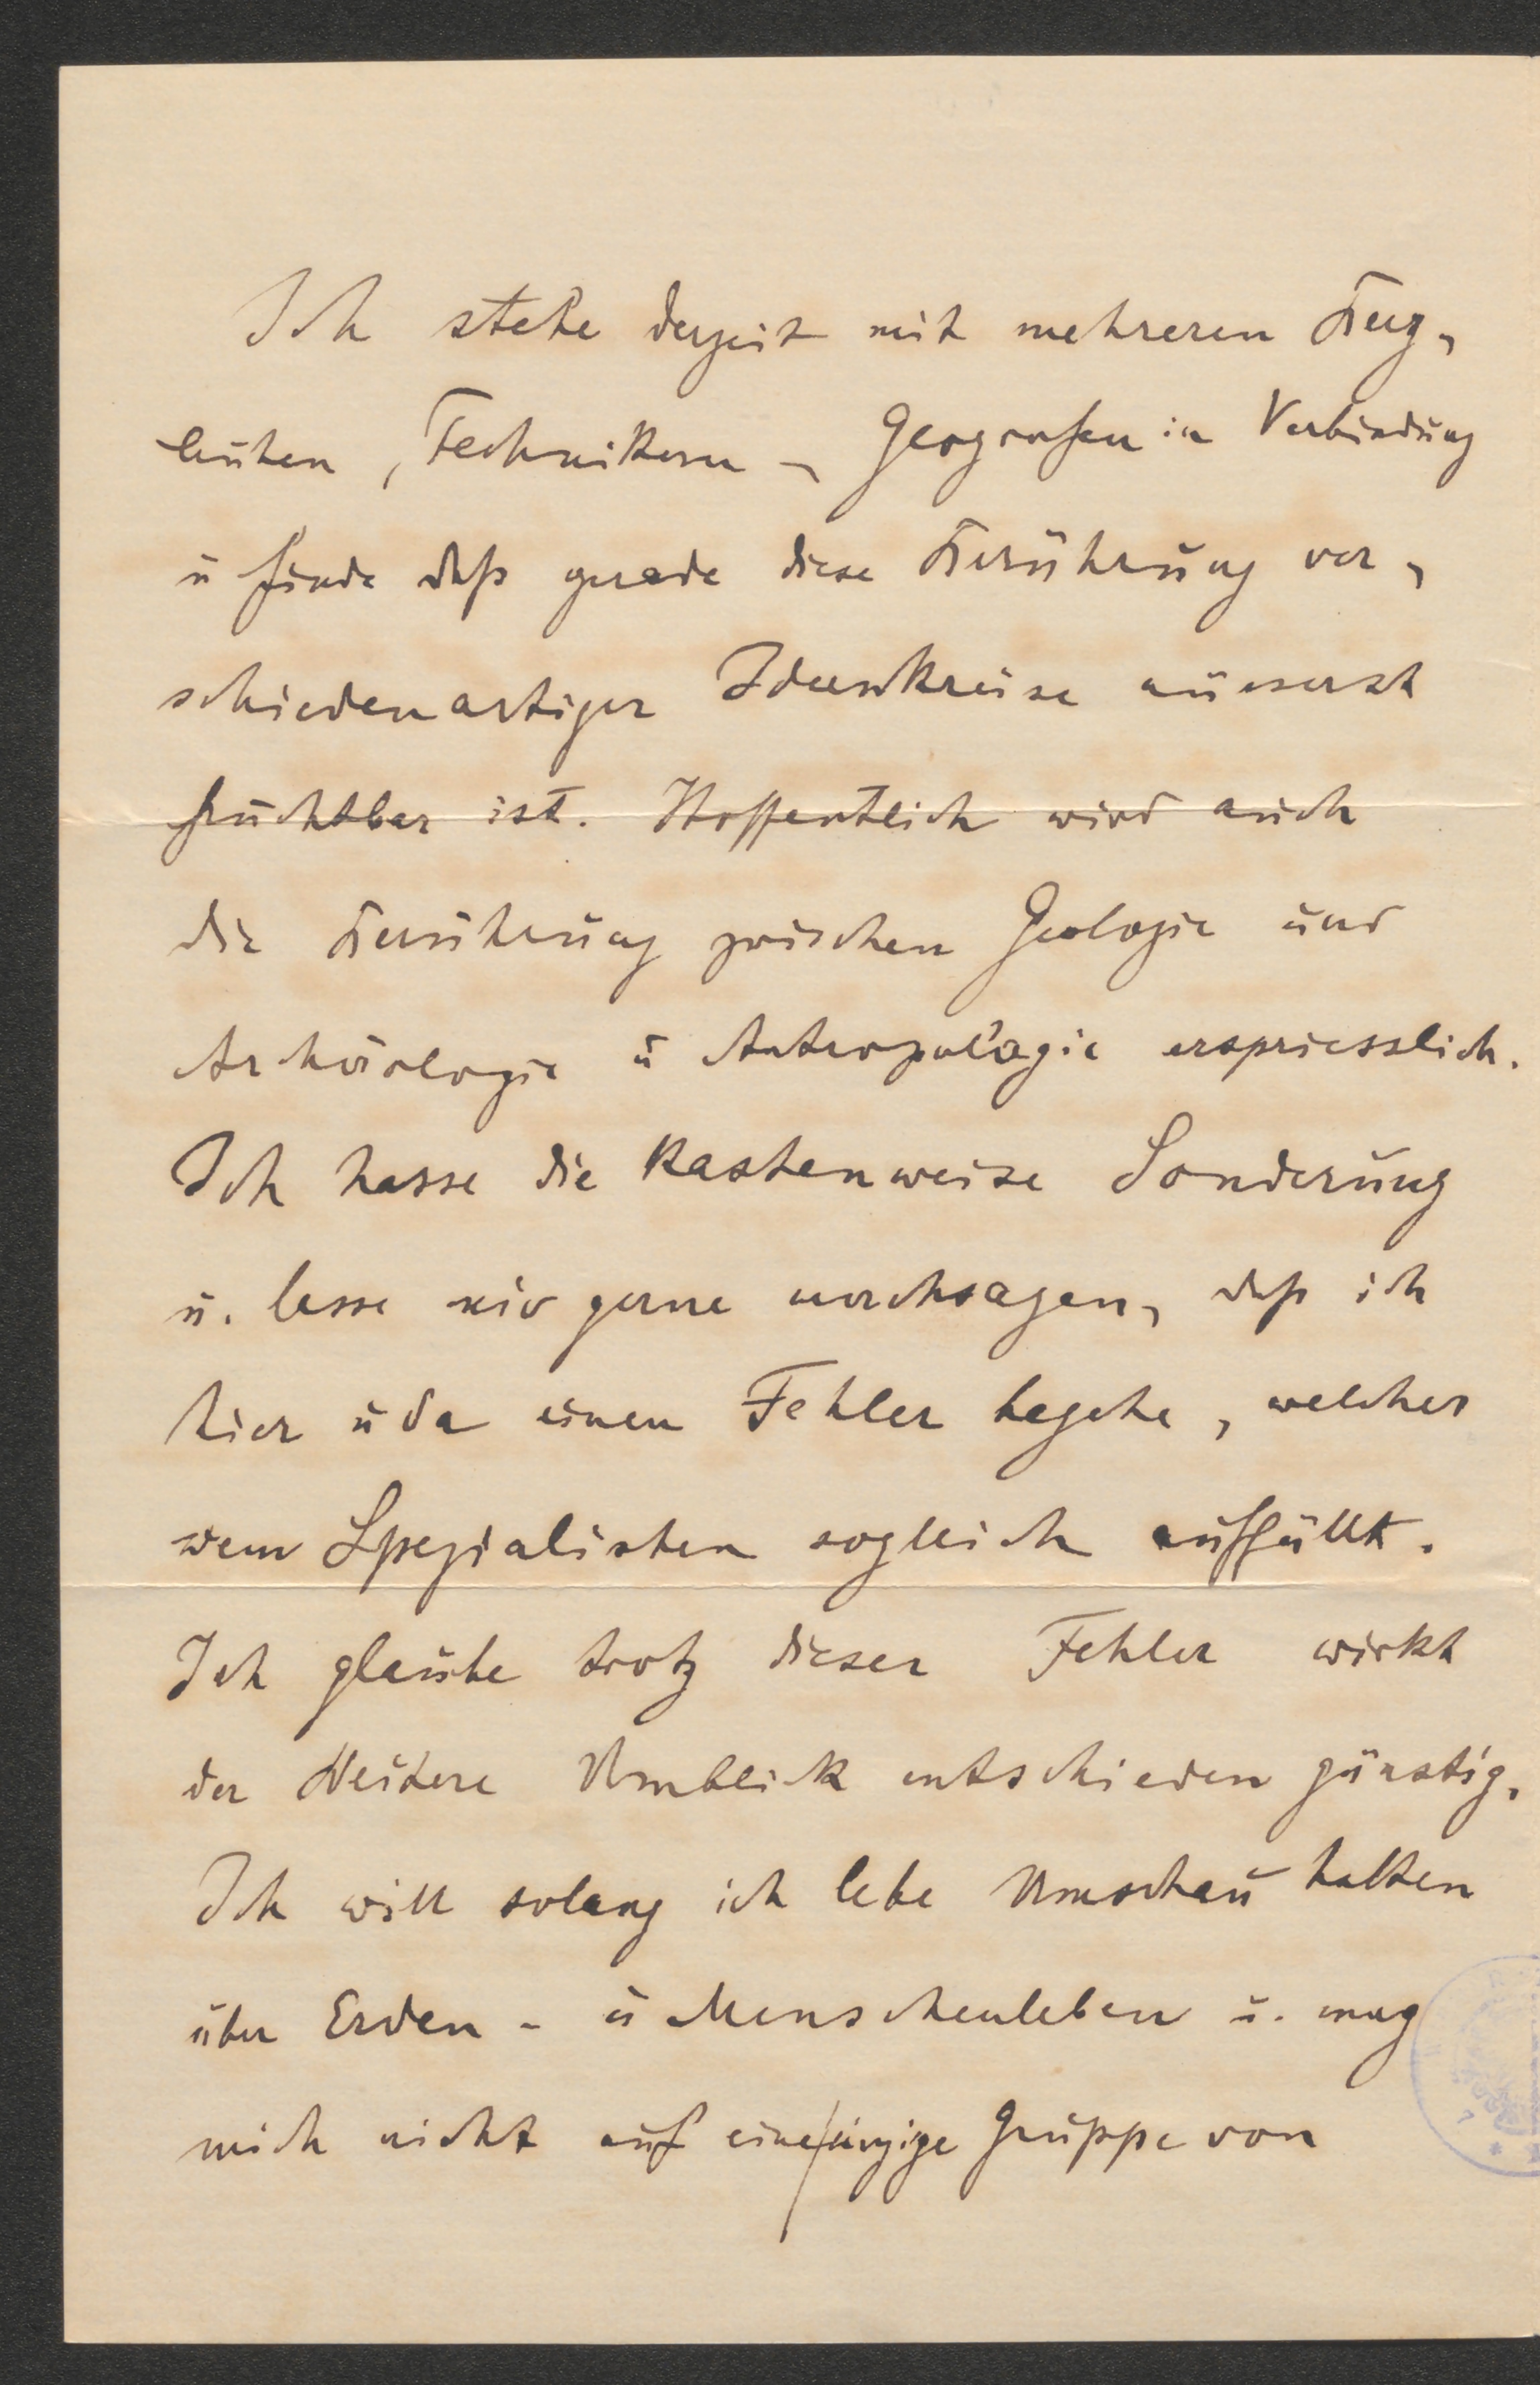 Ich stehe derzeit mit mehreren Berg-
leuten, Technikern -, Geografen in Verbindung
u finde daß gerade diese Berührung ver-
schiedenartiger Ideenkreise aüesserst
fruchtbar ist. Hoffentlich wird auch
die Berührung zwischen Geologie und
Archäologie u Antropologie erspriesslich.
Ich hasse die kastenweise Sonderung
u. lasse mir gerne nachsagen, daß ich
hier u da einen Fehler begehe, welcher
dem Spezialisten sogleich auffällt.
Ich glaube trotz dieser Fehler wirkt
der Weitere Umblick entschieden günstig.
Ich will solang ich lebe Umschau halten
über Erden - u Menschenleben u. mag
mich nicht auf eine/einzige Gruppe von